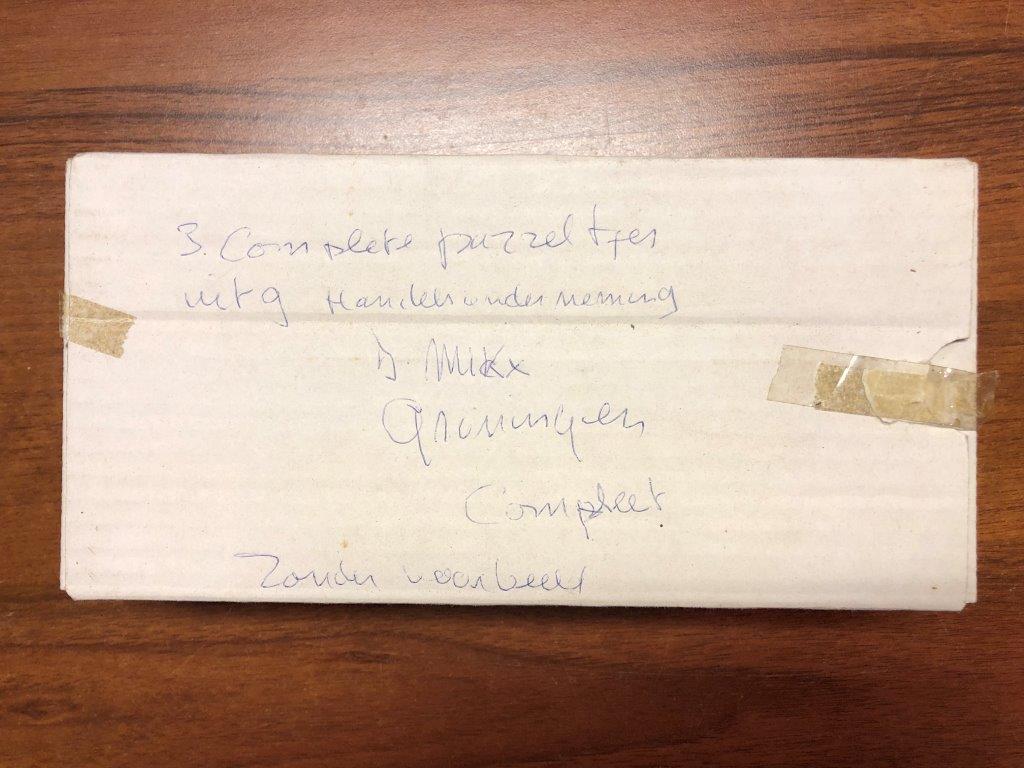 3. Complete puzzeltjes
uitg Handelsonderneming
D. Mikx
Groningen
Compleet
Zonder voorbeeld